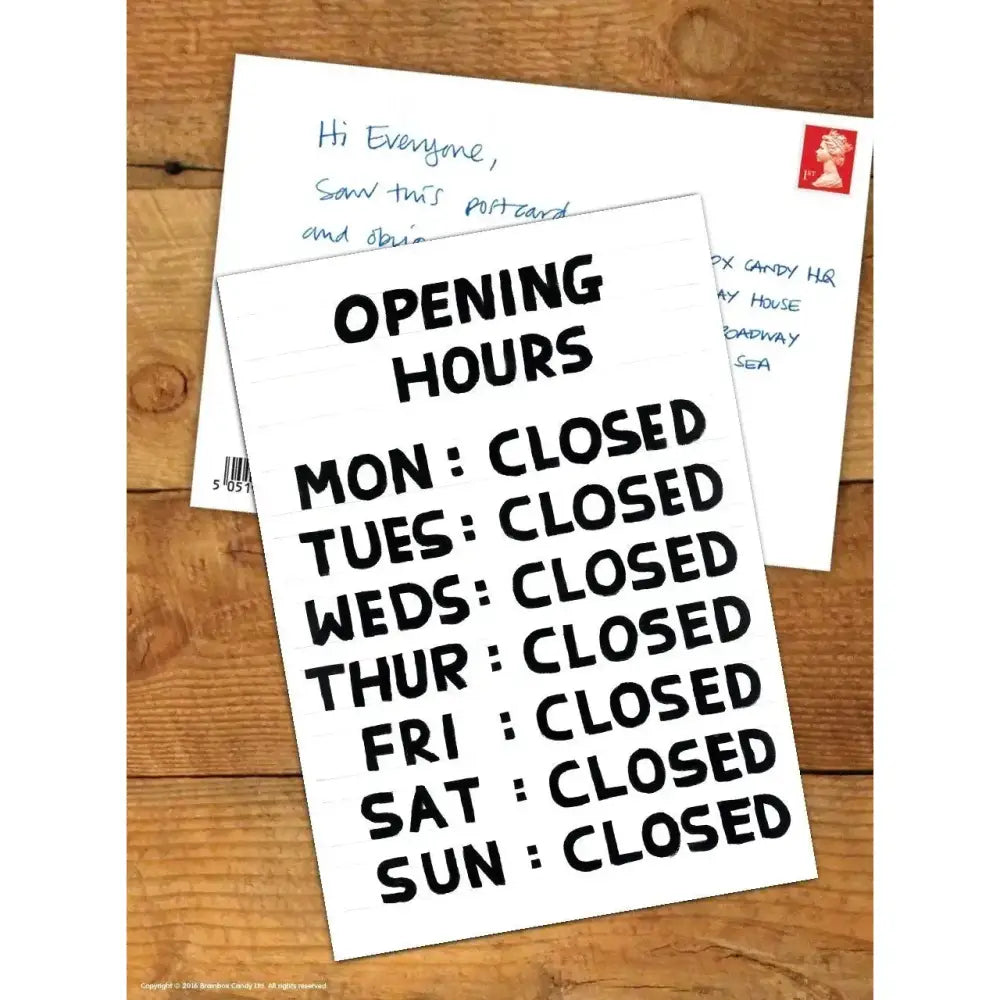 Hi Everyone,
Saw this postcard
and
1ST
CANDY HQ
HOUSE
SEA
OPENING
HOURS
MON : CLOSED
TUES : CLOSED
WEDS : CLOSED
THUR : CLOSED
FRI : CLOSED
SAT : CLOSED
SUN : CLOSED
5 051
Copyright © 2016 Brainbox Candy Ltd. All rights reserved